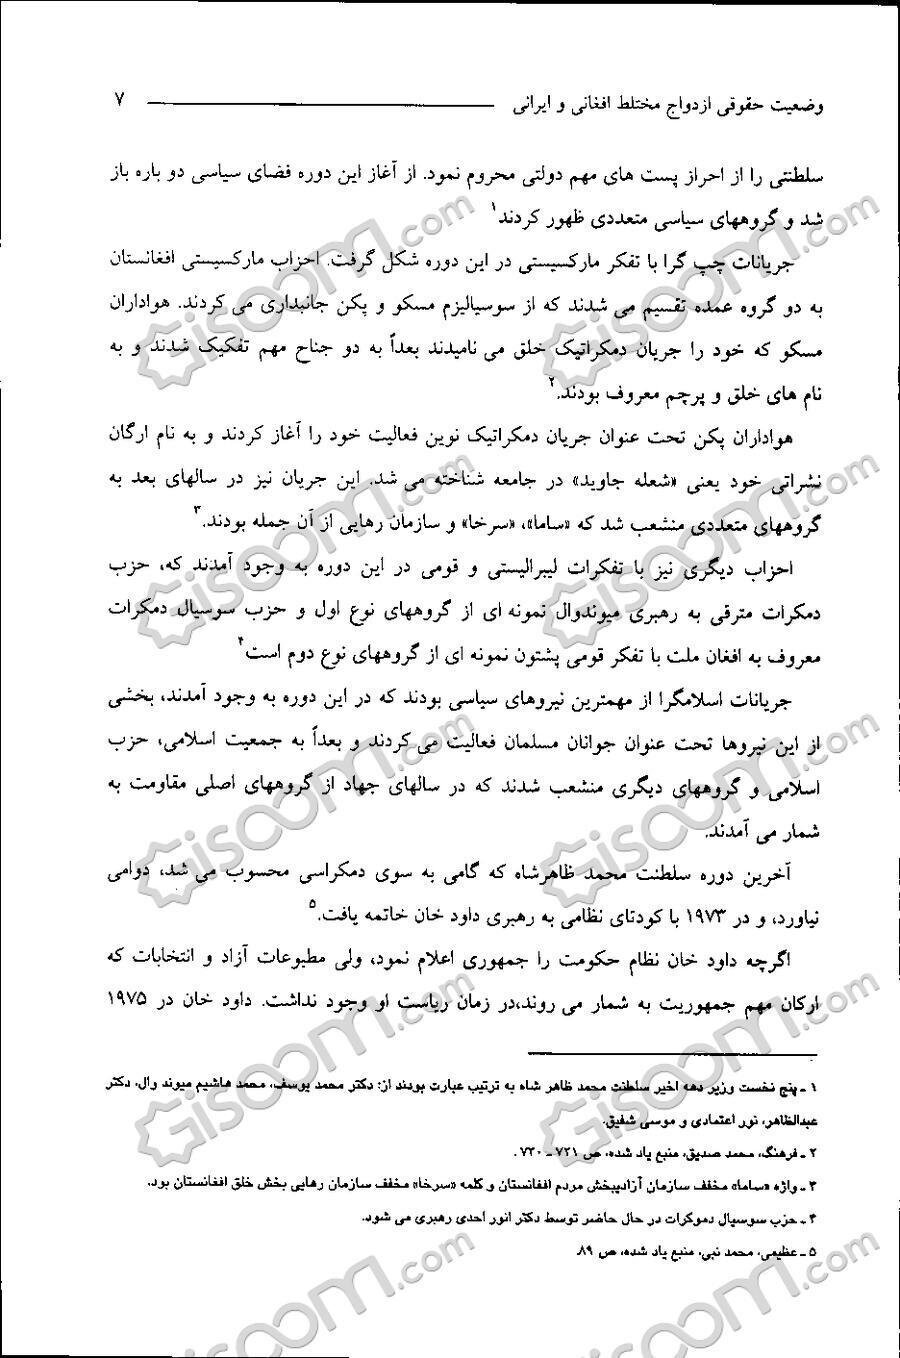 وضعیت حقوقی ازدواج مختلط افغانی و ایرانی ۷
سلطنتی را از احراز پست های مهم دولتی محروم نمود. از آغاز این دوره فضای سیاسی دو باره باز
شد و گروههای سیاسی متعددی ظهور کردند۱
جریانات چپ گرا با تفکر مارکسیستی در این دوره شکل گرفت. احزاب مارکسیستی افغانستان
به دو گروه عمده تقسیم می شدند که از سوسیالیزم مسکو و پکن جانبداری می کردند. هواداران
مسکو که خود را جریان دمکراتیک خلق می نامیدند بعداً به دو جناح مهم تفکیک شدند و به
نام های خلق و پرچم معروف بودند.۲
هواداران پکن تحت عنوان جریان دمکراتیک نوین فعالیت خود را آغاز کردند و به نام ارگان
نشراتی خود یعنی «شعله جاوید» در جامعه شناخته می شد. این جریان نیز در سالهای بعد به
گروههای متعددی منشعب شد که «ساما»، «سرخا» و سازمان رهایی از آن جمله بودند.۳
احزاب دیگری نیز با تفکرات لیبرالیستی و قومی در این دوره به وجود آمدند که، حزب
دمکرات مترقی به رهبری میوندوال نمونه ای از گروههای نوع اول و حزب سوسیال دمکرات
معروف به افغان ملت با تفکر قومی پشتون نمونه ای از گروههای نوع دوم است۴
جریانات اسلامگرا از مهمترین نیروهای سیاسی بودند که در این دوره به وجود آمدند، بخشی
از این نیروها تحت عنوان جوانان مسلمان فعالیت می کردند و بعداً به جمعیت اسلامی، حزب
اسلامی و گروههای دیگری منشعب شدند که در سالهای جهاد از گروههای اصلی مقاومت به
شمار می آمدند.
آخرین دوره سلطنت محمد ظاهرشاه که گامی به سوی دمکراسی محسوب می شد، دوامی
نیاورد، و در ۱۹۷۳ با کودتای نظامی به رهبری داود خان خاتمه یافت.۵
اگرچه داود خان نظام حکومت را جمهوری اعلام نمود، ولی مطبوعات آزاد و انتخابات که
ارکان مهم جمهوریت به شمار می روند،در زمان ریاست او وجود نداشت. داود خان در ۱۹۷۵
۱ ـ پنج نخست وزیر دهه اخیر سلطنت محمد ظاهر شاه به ترتیب عبارت بودند از: دکتر محمد یوسف، محمد هاشیم میوند وال، دکتر
عبدالظاهر، نور اعتمادی و موسی شفیق.
۲ ـ فرهنگ، محمد صدیق، منبع یاد شده، ص ۷۲۱ ـ ۷۲۰ .
۳ ـ واژه «ساما» مخفف سازمان آزادیبخش مردم افغانستان و کلمه «سرخا» مخفف سازمان رهایی بخش خلق افغانستان بود.
۴ ـ حزب سوسیال دموکرات در حال حاضر توسط دکتر انور احدی رهبری می شود.
۵ ـ عظیمی، محمد نبی، منبع یاد شده، ص ۸۹
Gisoom.com
Gisoom.com
Gisoom.com
Gisoom.com
Gisoom.com
Gisoom.com
Gisoom.com
Gisoom.com
Gisoom.com
Gisoom.com